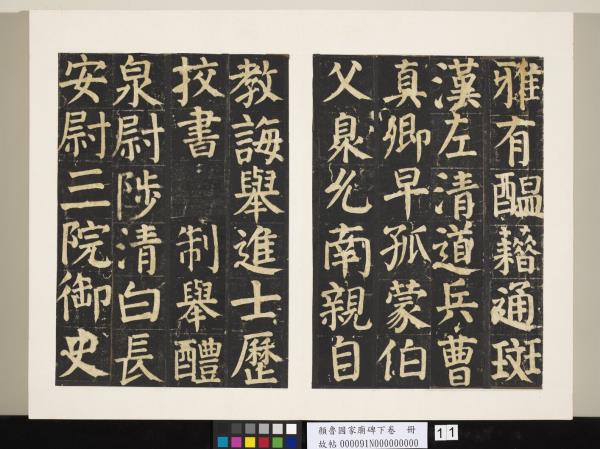 雅有醞藉通班
漢左清道兵曹
真卿早孤蒙伯
父臮允南親自
教誨舉進士歷
挍書 制舉醴
泉尉陟清白長
安尉三院御史
顏魯國家廟碑下卷 冊
故帖 000091N000000000
11